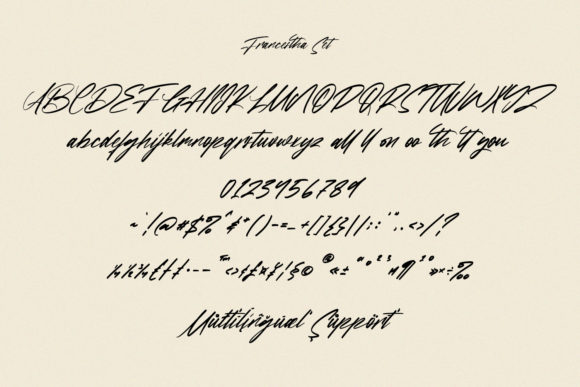 Francestha Set
ABCDEFGHIJKLMNOPQRSTUVWXYZ
abcdefghijklmnopqrstuvwxyz all ll on oo th tt you
0123456789
~`!@#$%^&*()-=_+[]{}|/:;"'.,<>/?
Müttilíñğúàl Şüppört